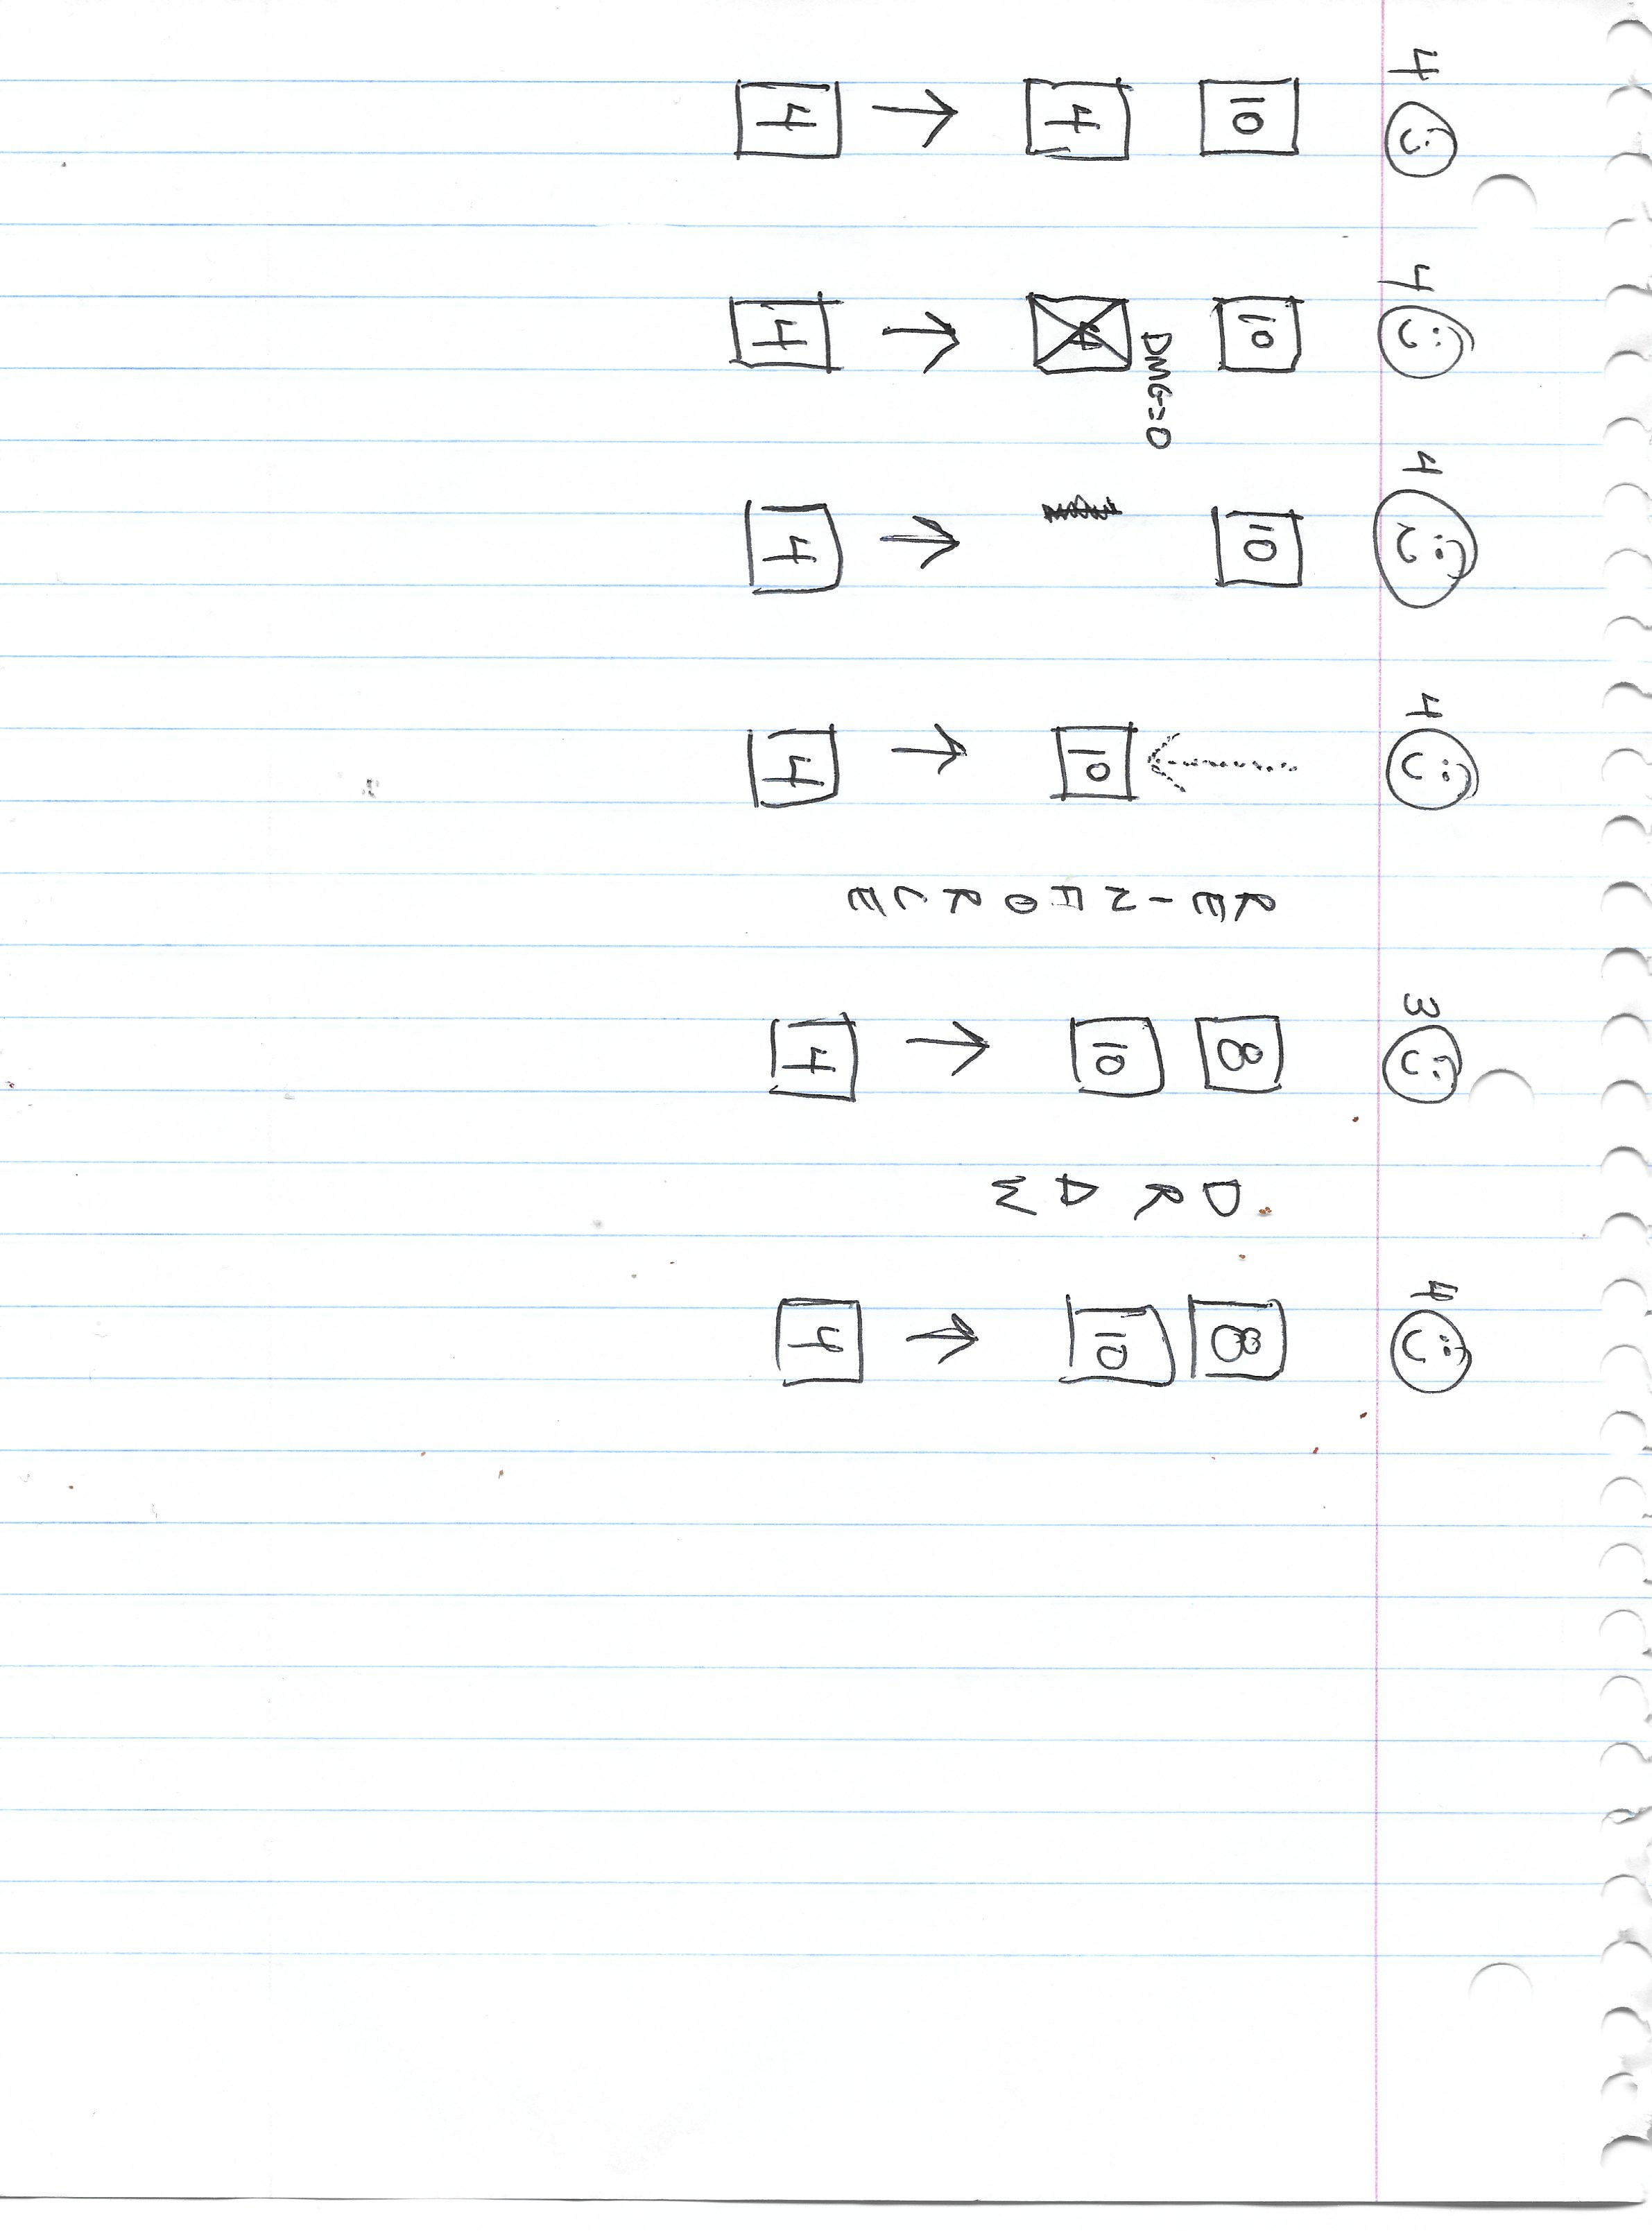 4
10
4
4
4
10
DMG=0
4
4
4
10
4
4
10
4
REINFORCE
3
8
10
4
DRAW
4
8
10
4